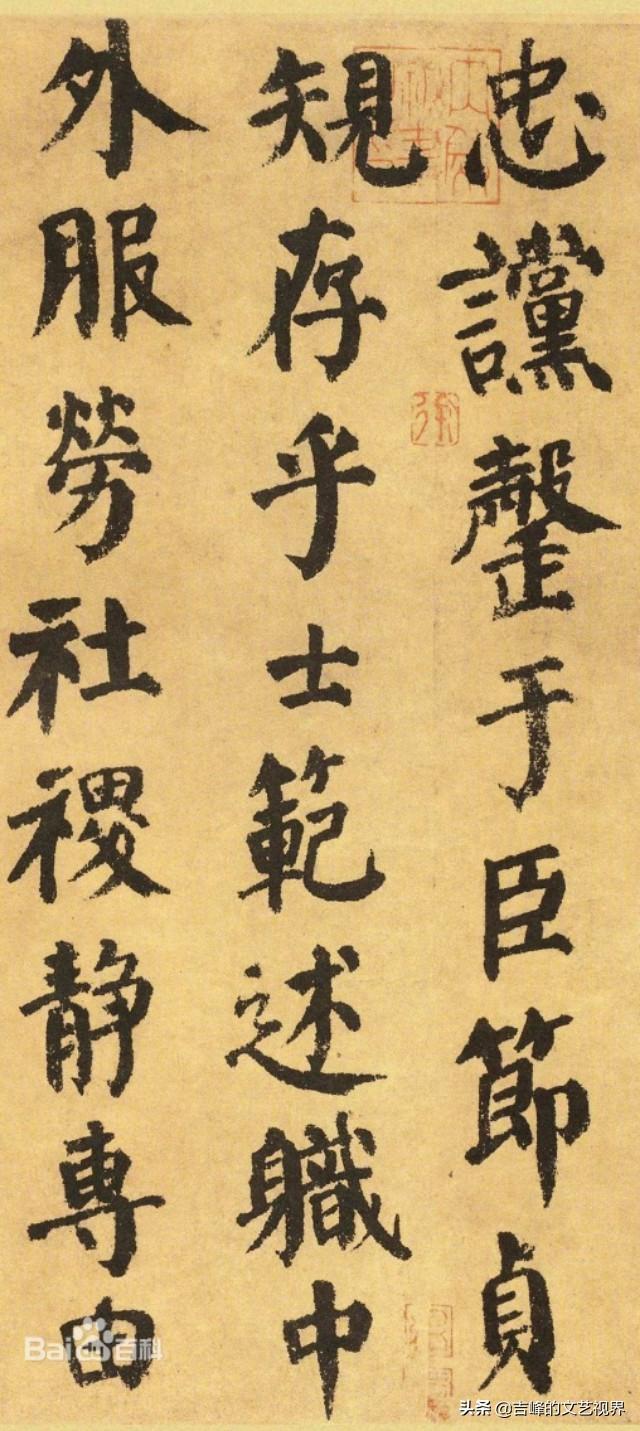 忠讜罄于臣節貞
規存乎士範述職中
外服勞社稷静專由
Bai百科
头条 @吉峰的文艺视界